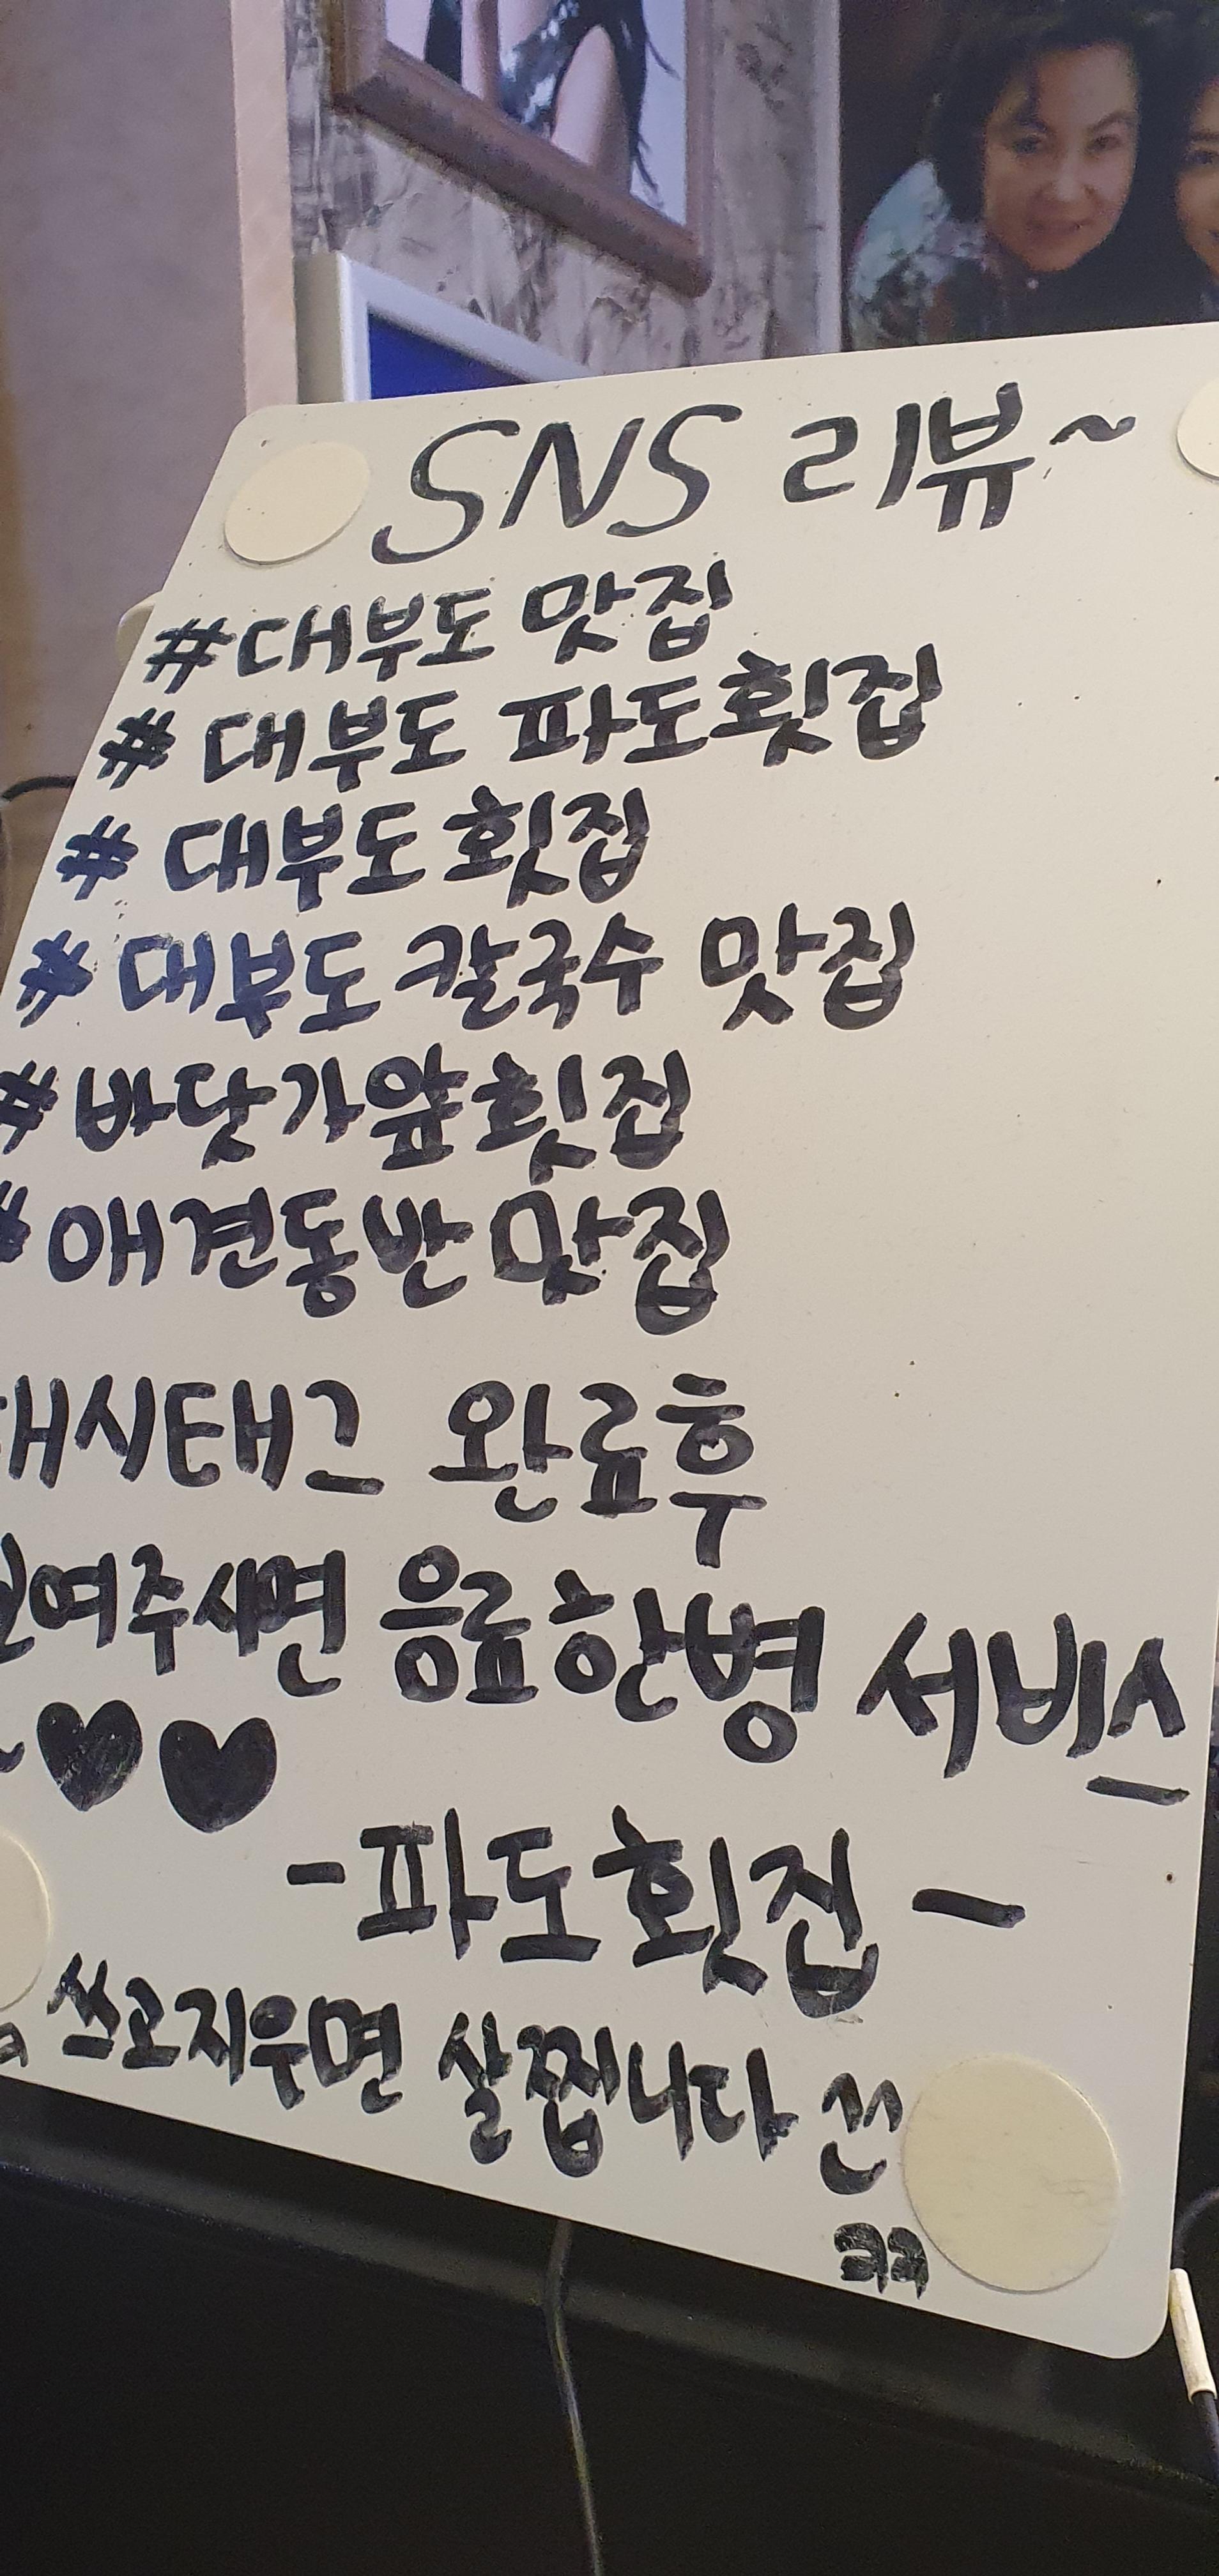 SNS 리뷰~
#대부도 맛집
# 대부도 파도횟집
# 대부도횟집
# 대부도칼국수 맛집
#바닷가앞횟집
#애견동반맛집
해시태그 완료후
보여주시면 음료한병 서비스
~♥♥
-파도횟집-
쓰고지우면 살찝니다
ㅋㅋ